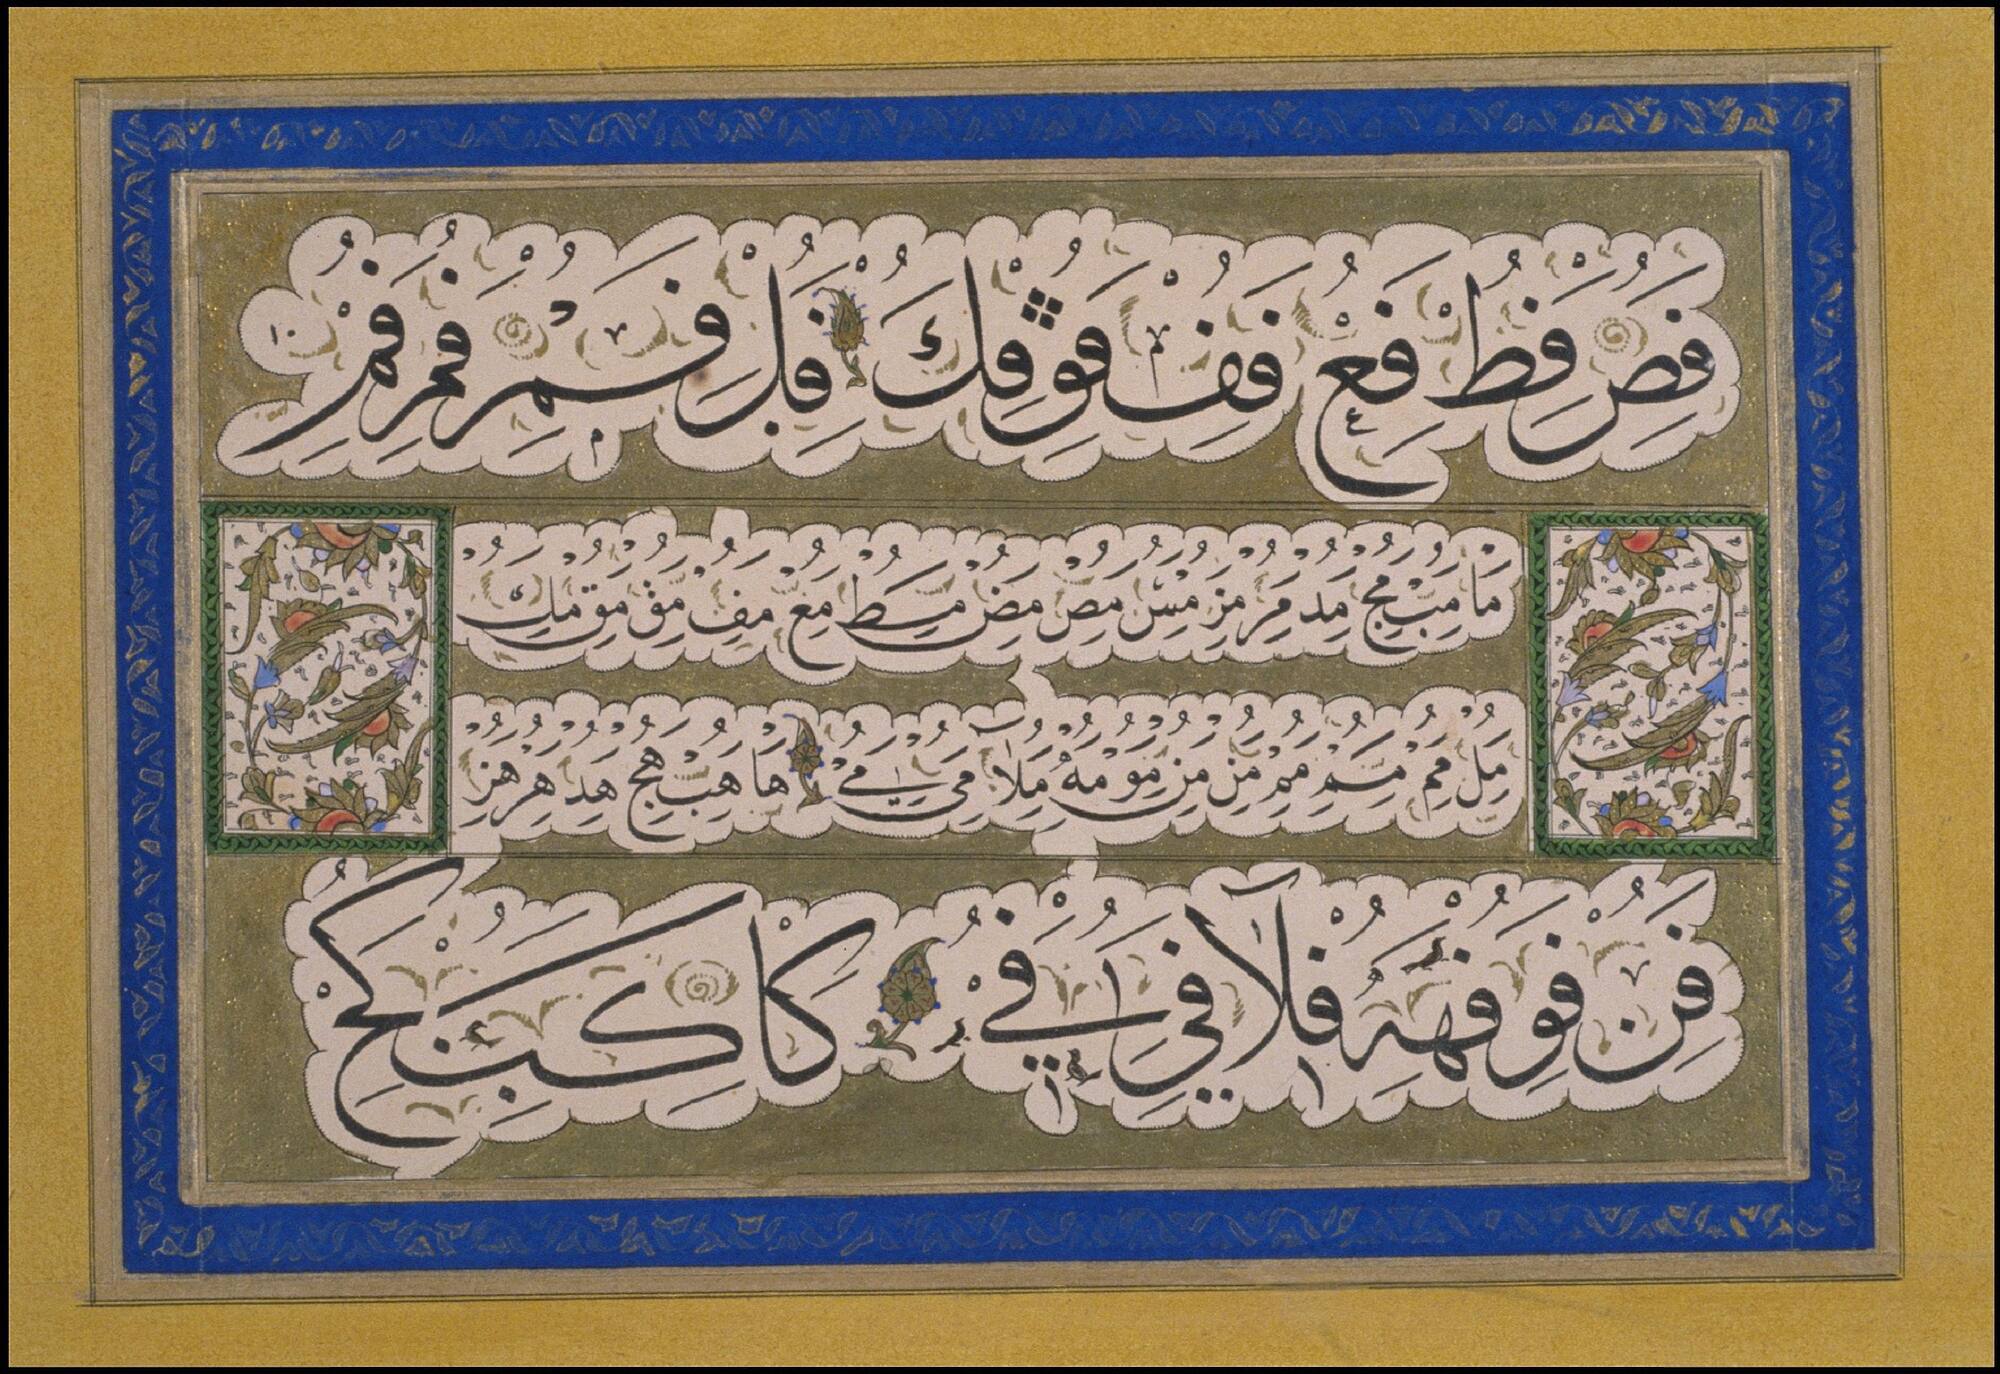 فص فط فع فف فق فك فل فسم فم فم ١٠
ما مب مج مد مر مز مس مص مض مسط مع مف مق مق مك
مل مم مسم مم من من مو مه ملا مى مى ها هب هج هد هر هز
فن فو فهه فلا فى فى كا ككب كج